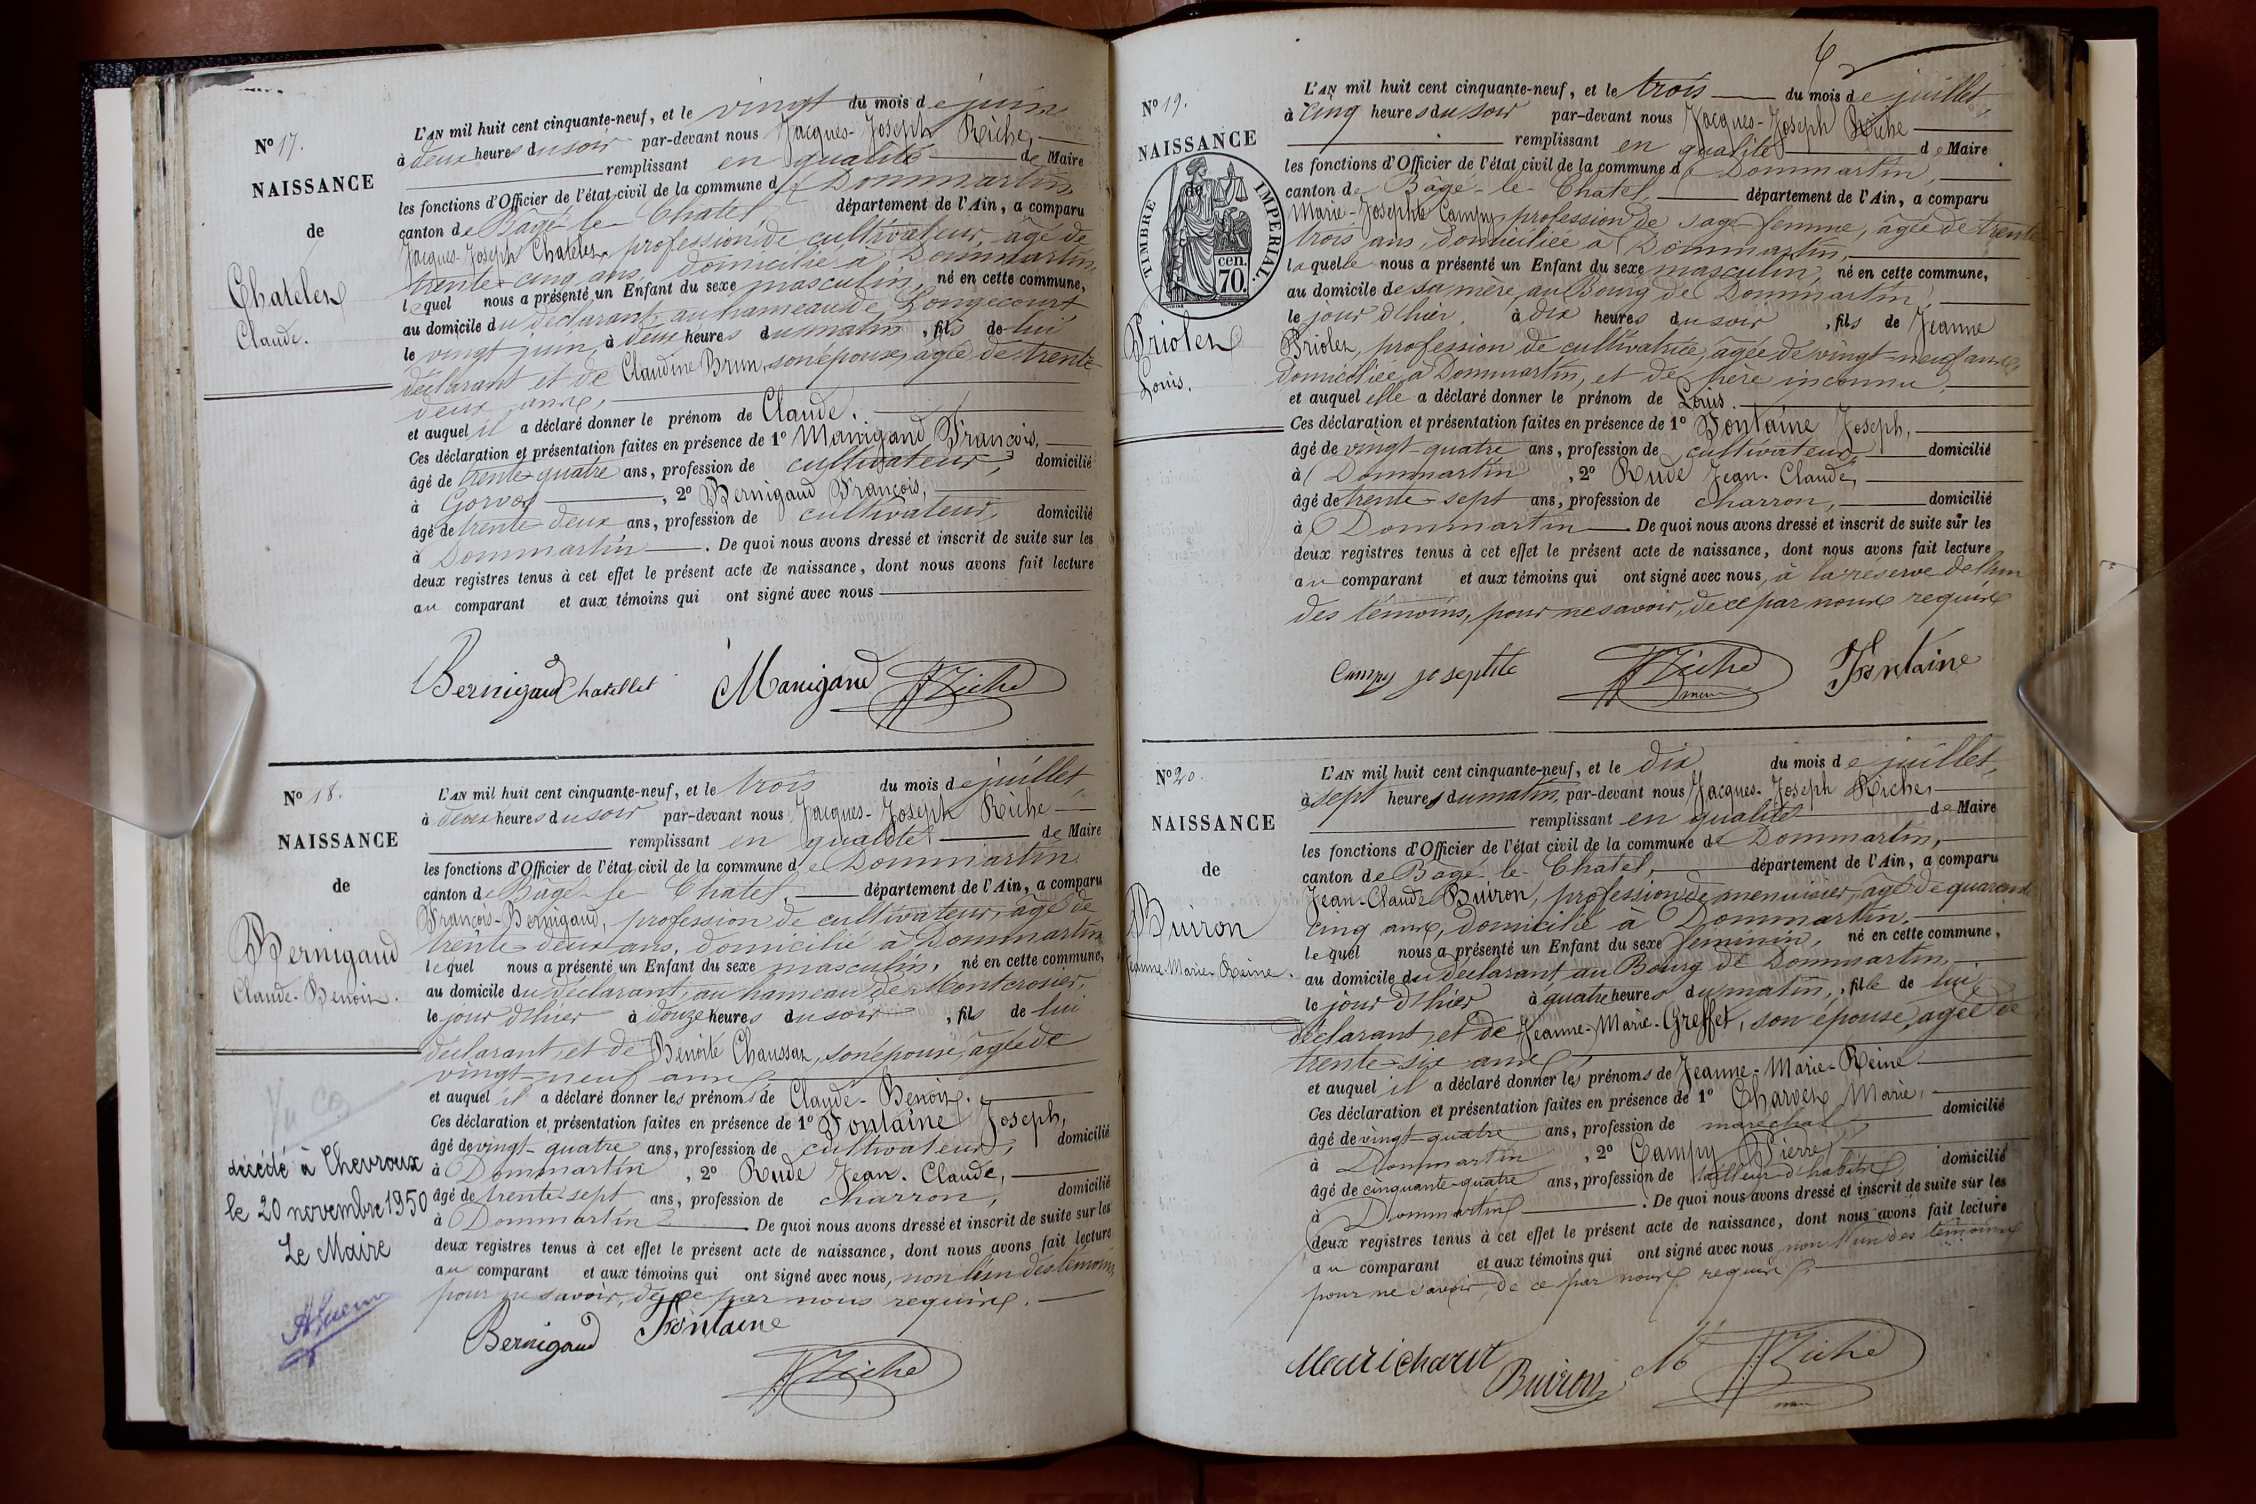 N° 17.
NAISSANCE
de
Chatelet
Claude.
L'AN mil huit cent cinquante-neuf, et le vingt du mois de juin
à deux heures du soir par-devant nous Jacques-Joseph Riche,
remplissant en qualité de Maire
les fonctions d'Officier de l'état civil de la commune de Dommartin
canton de Bâgé-le-Chatel, département de l'Ain, a comparu
Jacques-Joseph Chatelet, profession de cultivateur, âgé de
trente-cinq ans, domicilié à Dommartin,
lequel nous a présenté un Enfant du sexe masculin, né en cette commune,
au domicile du déclarant, au hameau de Longecourt
le vingt juin, à deux heures du matin, fils de lui
déclarant et de Claudine Brun, son épouse, âgée de trente
deux ans,
et auquel il a déclaré donner le prénom de Claude.
Ces déclaration et présentation faites en présence de 1° Manigand François,
âgé de trente-quatre ans, profession de cultivateur, domicilié
à Gorvod, 2° Bernigaud François,
âgé de trente-deux ans, profession de cultivateur, domicilié
à Dommartin. De quoi nous avons dressé et inscrit de suite sur les
deux registres tenus à cet effet le présent acte de naissance, dont nous avons fait lecture
au comparant et aux témoins qui ont signé avec nous
Bernigaud Chatellet Manigand Riche
N° 18.
NAISSANCE
de
Bernigaud
Claude-Benoit.
Vu
décédé à Chevroux
le 20 novembre 1950
Le Maire
L'AN mil huit cent cinquante-neuf, et le trois du mois de juillet,
à deux heures du soir par-devant nous Jacques-Joseph Riche
remplissant en qualité de Maire
les fonctions d'Officier de l'état civil de la commune de Dommartin
canton de Bâgé-le-Chatel, département de l'Ain, a comparu
François-Bernigaud, profession de cultivateur, âgé de
trente-deux ans, domicilié à Dommartin
lequel nous a présenté un Enfant du sexe masculin, né en cette commune,
au domicile du déclarant, au hameau de Montcrosier,
le jour d'hier à douze heures du soir, fils de lui
déclarant, et de Benoite Chaussat, son épouse, âgée de
vingt-neuf ans
et auquel il a déclaré donner les prénoms de Claude-Benoit.
Ces déclaration et présentation faites en présence de 1° Fontaine Joseph,
âgé de vingt-quatre ans, profession de cultivateur, domicilié
à Dommartin, 2° Rude Jean-Claude,
âgé de trente-sept ans, profession de charron, domicilié
à Dommartin. De quoi nous avons dressé et inscrit de suite sur les
deux registres tenus à cet effet le présent acte de naissance, dont nous avons fait lecture
au comparant et aux témoins qui ont signé avec nous, non l'un des témoins,
pour ne savoir, de ce par nous requis.
Bernigaud Fontaine
Riche
N° 19.
NAISSANCE
de
TIMBRE IMPERIAL.
cen.
70.
Priolet
Louis.
L'AN mil huit cent cinquante-neuf, et le trois du mois de juillet,
à cinq heures du soir par-devant nous Jacques-Joseph Riche
remplissant en qualité de Maire
les fonctions d'Officier de l'état civil de la commune de Dommartin,
canton de Bâgé-le-Chatel, département de l'Ain, a comparu
Marie-Josephte Campy, profession de sage-femme, âgée de trente
trois ans, domiciliée à Dommartin,
laquelle nous a présenté un Enfant du sexe masculin, né en cette commune,
au domicile de sa mère, au Bourg de Dommartin,
le jour d'hier, à dix heures du soir, fils de Jeanne
Priolet, profession de cultivatrice, âgée de vingt-neuf ans,
domiciliée à Dommartin, et de père inconnu,
et auquel elle a déclaré donner le prénom de Louis.
Ces déclaration et présentation faites en présence de 1° Fontaine Joseph,
âgé de vingt-quatre ans, profession de cultivateur, domicilié
à Dommartin, 2° Rude Jean-Claude,
âgé de trente-sept ans, profession de charron, domicilié
à Dommartin. De quoi nous avons dressé et inscrit de suite sur les
deux registres tenus à cet effet le présent acte de naissance, dont nous avons fait lecture
au comparant et aux témoins qui ont signé avec nous, à la réserve de l'un
des témoins, pour ne savoir, de ce par nous requis
Campy josephte Riche Fontaine
maire
N° 20.
NAISSANCE
de
Buiron
Jeanne-Marie-Reine.
L'AN mil huit cent cinquante-neuf, et le dix du mois de juillet,
à sept heures du matin, par-devant nous Jacques-Joseph Riche,
remplissant en qualité de Maire
les fonctions d'Officier de l'état civil de la commune de Dommartin,
canton de Bâgé-le-Chatel, département de l'Ain, a comparu
Jean-Claude Buiron, profession de menuisier, âgé de quarante
cinq ans, domicilié à Dommartin,
lequel nous a présenté un Enfant du sexe féminin, né en cette commune,
au domicile du déclarant, au Bourg de Dommartin,
le jour d'hier à quatre heures du matin, fille de lui
déclarant, et de Jeanne-Marie-Greffet, son épouse, âgée de
trente-six ans
et auquel il a déclaré donner les prénoms de Jeanne-Marie-Reine
Ces déclaration et présentation faites en présence de 1° Charvet Marie,
âgé de vingt-quatre ans, profession de maréchal, domicilié
à Dommartin, 2° Campy Pierre,
âgé de cinquante-quatre ans, profession de tailleur d'habits, domicilié
à Dommartin. De quoi nous avons dressé et inscrit de suite sur les
deux registres tenus à cet effet le présent acte de naissance, dont nous avons fait lecture
au comparant et aux témoins qui ont signé avec nous non l'un des témoins
pour ne savoir, de ce par nous requis.
Buiron Riche